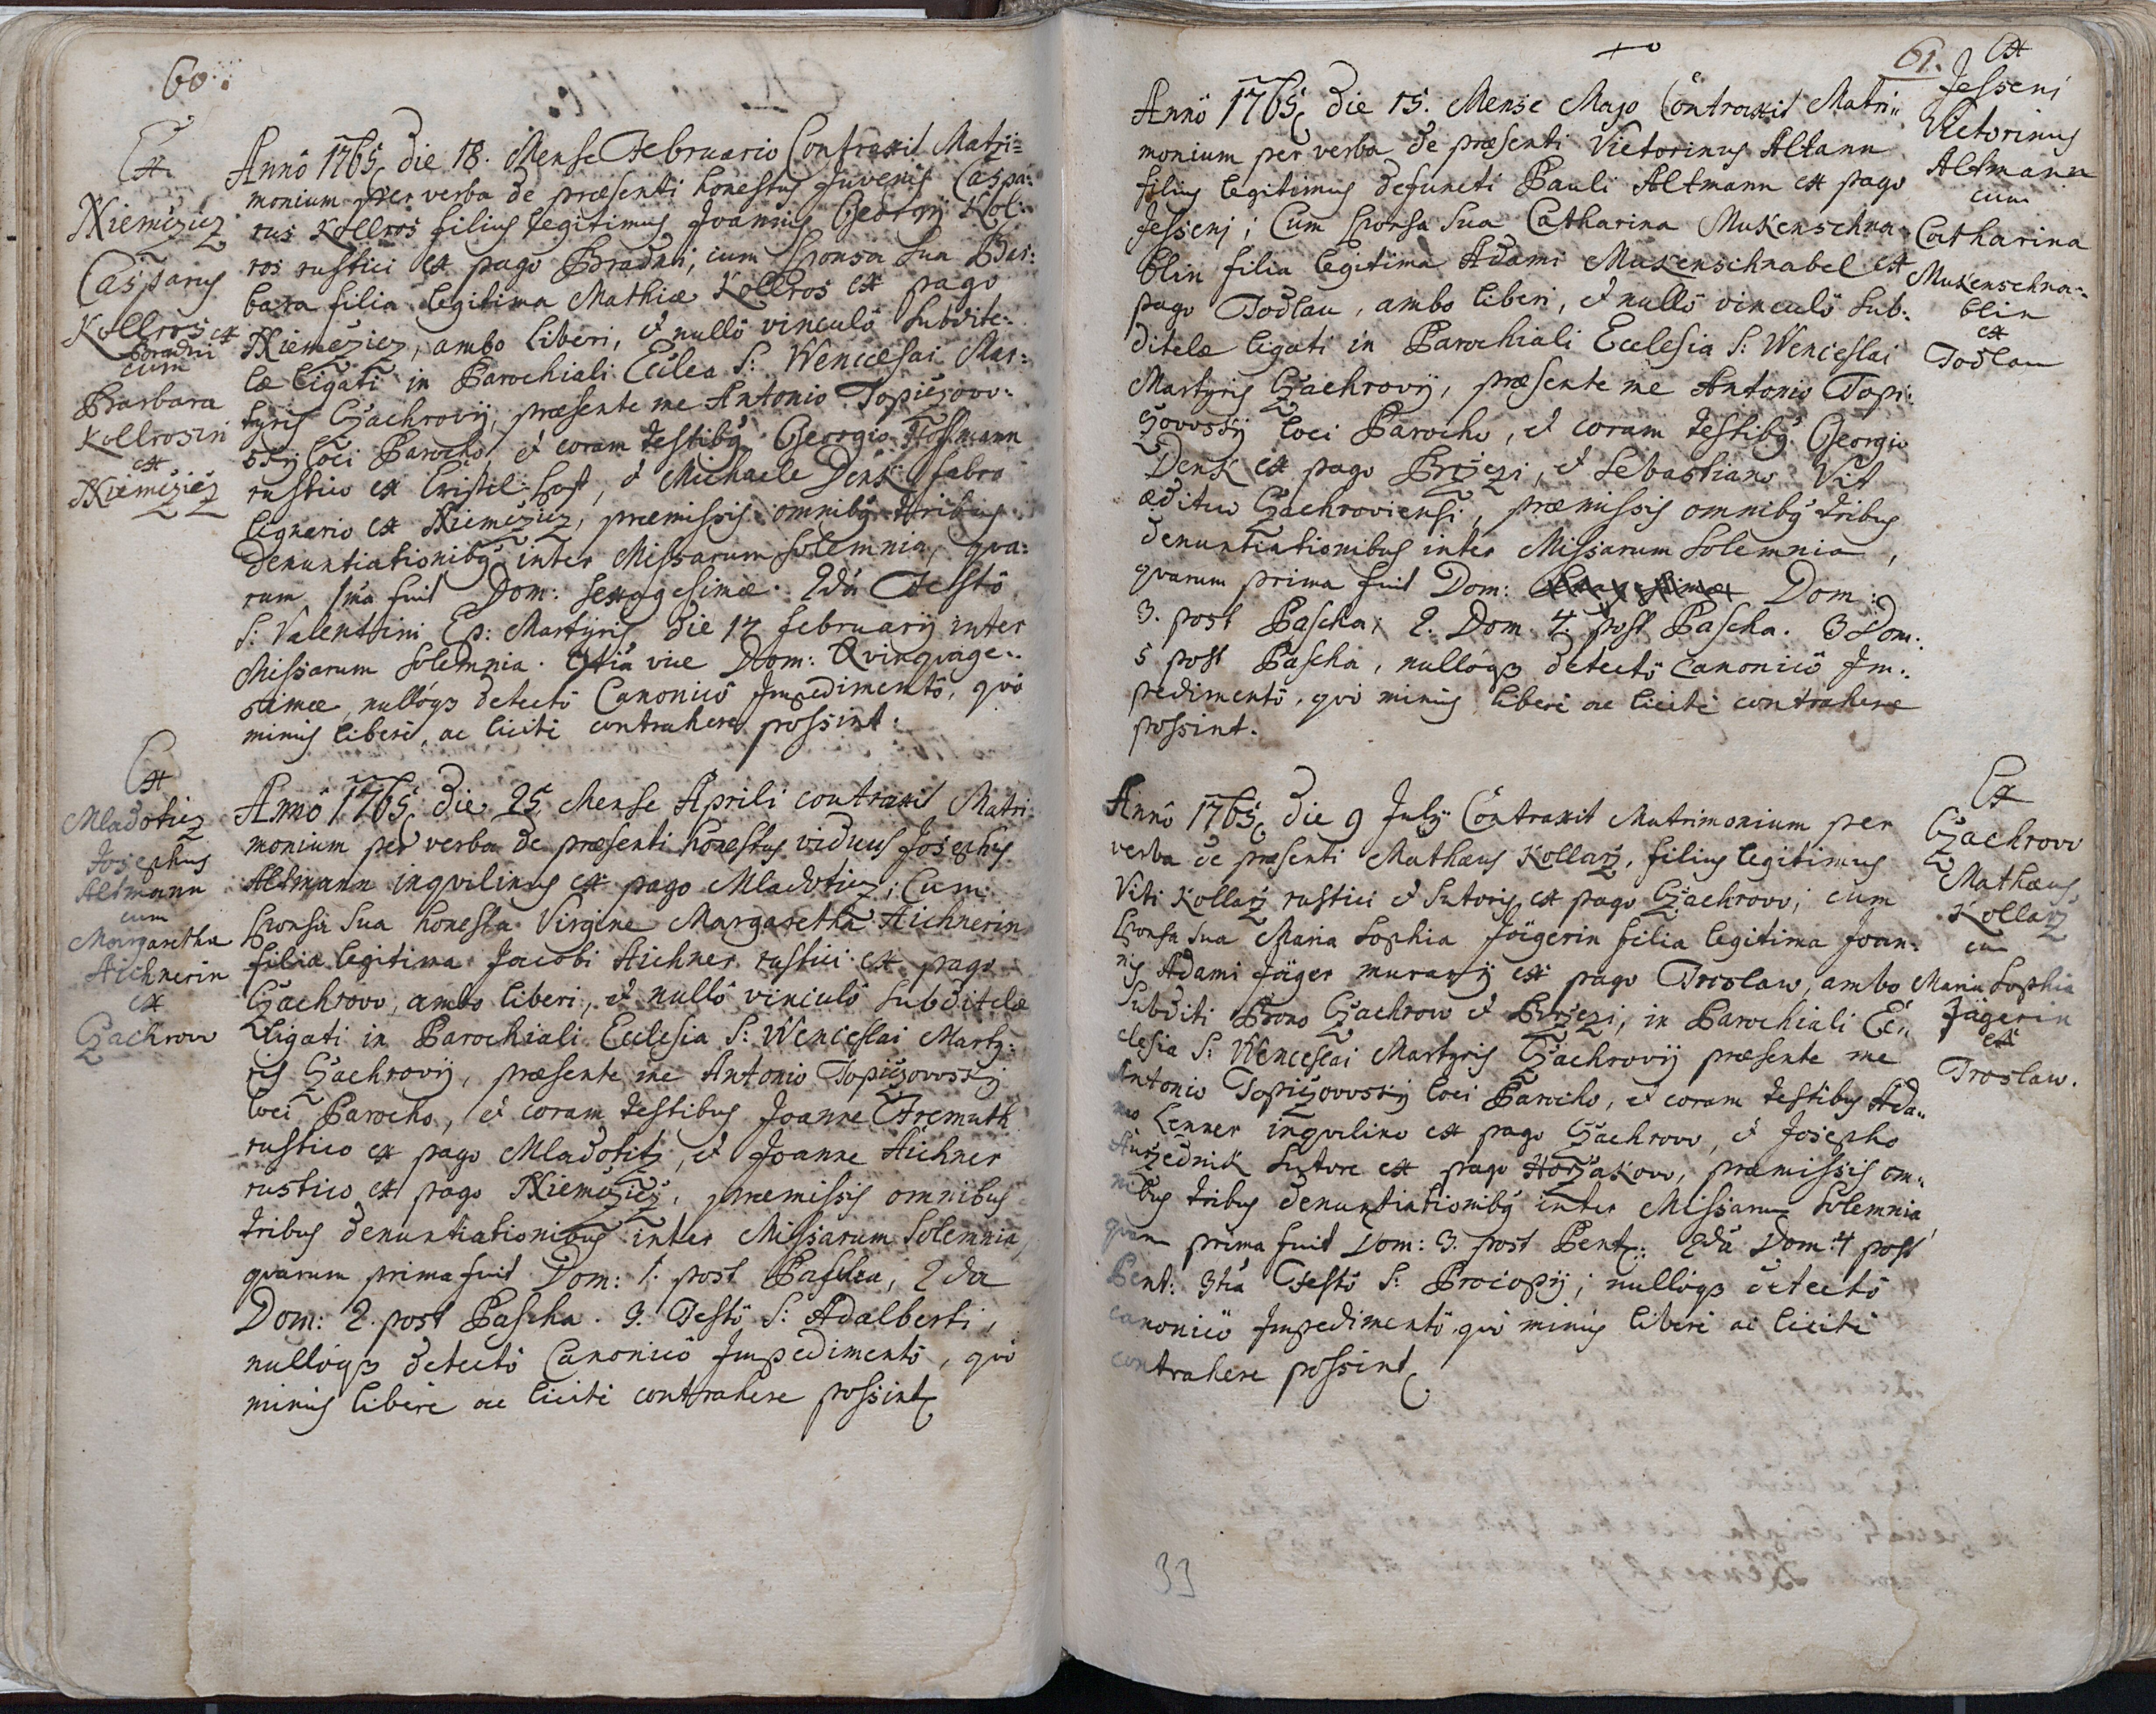 60.
Ex
Niemcżicz
Casparus
Kollros ex
Bradni
cum
Barbara
Kollrosin
ex
Niemcżicz
Anno 1765 die 18. Mense Februario Contraxit Matri=
monium per verba de præsenti honestus Juvenis Caspa:
rus Kollros filius legitimus Joannis Georgij Kol:
ros rustici ex pago Bradni, cum Sponsa sua Bar:
bara filia legitima Mathiæ Kollros ex pago
Niemcżicz, ambo liberi, et nullô vinculô subdite:
læ ligati in Parochiali Ecclea S: Wenceslai Mar:
tyris Czachrovij, præsente me Antonio Topiczovv:
sky loci Parocho et coram testibus Georgio Hoffmann
rustico ex Cristel-hoff, et Michaele Denk fabro
lignario ex Niemcżicz, præmissis omnibus tribus
denuntiationibus inter Missarum solemnia, qua:
rum 1ma fuit Dom: sexagesimæ. 2da Festô
S: Valentini Ep: Martyris die 14 februarij inter
Missarum solemnia. 3tia vice Dom: Qvinqvage:
simæ, nullóqз detectô Canonicô Impedimentô, quô
minus liberè, ac licitè contrahere possint.
Ex
Mladoticz
Josephus
Altmann
cum
Margaretha
Aichnerin
ex
Czachrow
Anno 1765 die 25 Mense Aprili contraxit Matri
monium per verba de præsenti honestus viduus Josephus
Altmann inqvilinus ex pago Mladoticz; Cum
Sponsa sua honesta Virgine Margaretha Aichnerin
filia legitima Jacobi Aichner rustici ex pago
Czachrovv, ambo liberi, et nullô vinculô subditelæ
ligati in Parochiali Ecclesia S: Wenceslai Marty:
ris Czachrovij, præsente me Antonio Topiczovvsky
loci Parocho, et coram testibus Joanne Fremuth
rustico ex pago Mladotitz, et Joanne Aichner
rustico ex pago Niemcżicz, præmissis omnibus
tribus denuntiationibus inter Missarum Solemnia,
quarum prima fuit Dom: 1. post Pascha, 2da
Dom: 2. post Pascha. 3. Festô S: Adalberti,
nullóqз detectô Canonicô Impedimentô, quô
minus liberè ac licitè contrahere possint
61.
Anno 1765 die 15. Mense Majo Contraxit Matri:
monium per verba de præsenti Victorinus Altann
filius legitimus defuncti Pauli Altmann ex pago
Jessenj; Cum Sponsa sua Catharina Mukenschna
blin filia legitima Adami Mukenschnabel ex
pago Todlau, ambo liberi, et nullô vinculô sub:
ditelæ ligati in Parochiali Ecclesia S: Wenceslai
Martyris Czachrovij, præsente me Antonio Topi:
czovvsky loci Parocho, et coram testibus Georgio
Denk ex pago Brżezi, et Sebastiano Vit
ædituo Czachroviensi, præmissis omnibus tribus
denuntiationibus inter Missarum solemnia,
quarum prima fuit Dom: Dom:
3. post Pascha, 2. Dom 4. post Pascha. 3 Dom:
5 post Pascha, nullóqз detectô Canonicô Im:
pedimentô, quô minus liberè ac licitè contrahere
possint.
Ex
Jesseni
Victorinus
Altmann
cum
Catharina
Mukenschna:
blin
ex
Todlau
Anno 1765 die 9 July Contraxit Matrimonium per
verba de præsenti Mathæus Kollarz, filius legitimus
Viti Kollarz rustici et Sutoris ex pago Czachrovv, cum
Sponsa sua Maria Sophia Jägerin filia legitima Joan:
nis Adami Jäger murarij ex pago Troslaw, ambo
subditi Bono Czachrow et Brżezi, in Parochiali Ec:
clesia S: Wenceslai Martyris Czachrovij præsente me
Antonio Topiczovvsky loci Parocho, et coram testibus Ada:
mo Lenner inqvilino ex pago Czachrovv, et Josepho
Aurzednik Sutore ex pago Horzakovv, præmissis om:
nibus tribus denuntiationibus inter Missarum Solemnia
quarum prima fuit Dom: 3. post Pent: 2da Dom: 4 post
Pent: 3tia Festô S: Procopij; nullóqз detectô
canonicô Impedimentô, quô minus liberè ac licitè
contrahere possint
Ex
Czachrovv
Mathæus
Kollarz
cum
Maria Sophia
Jägerin
ex
Troslaw.
33